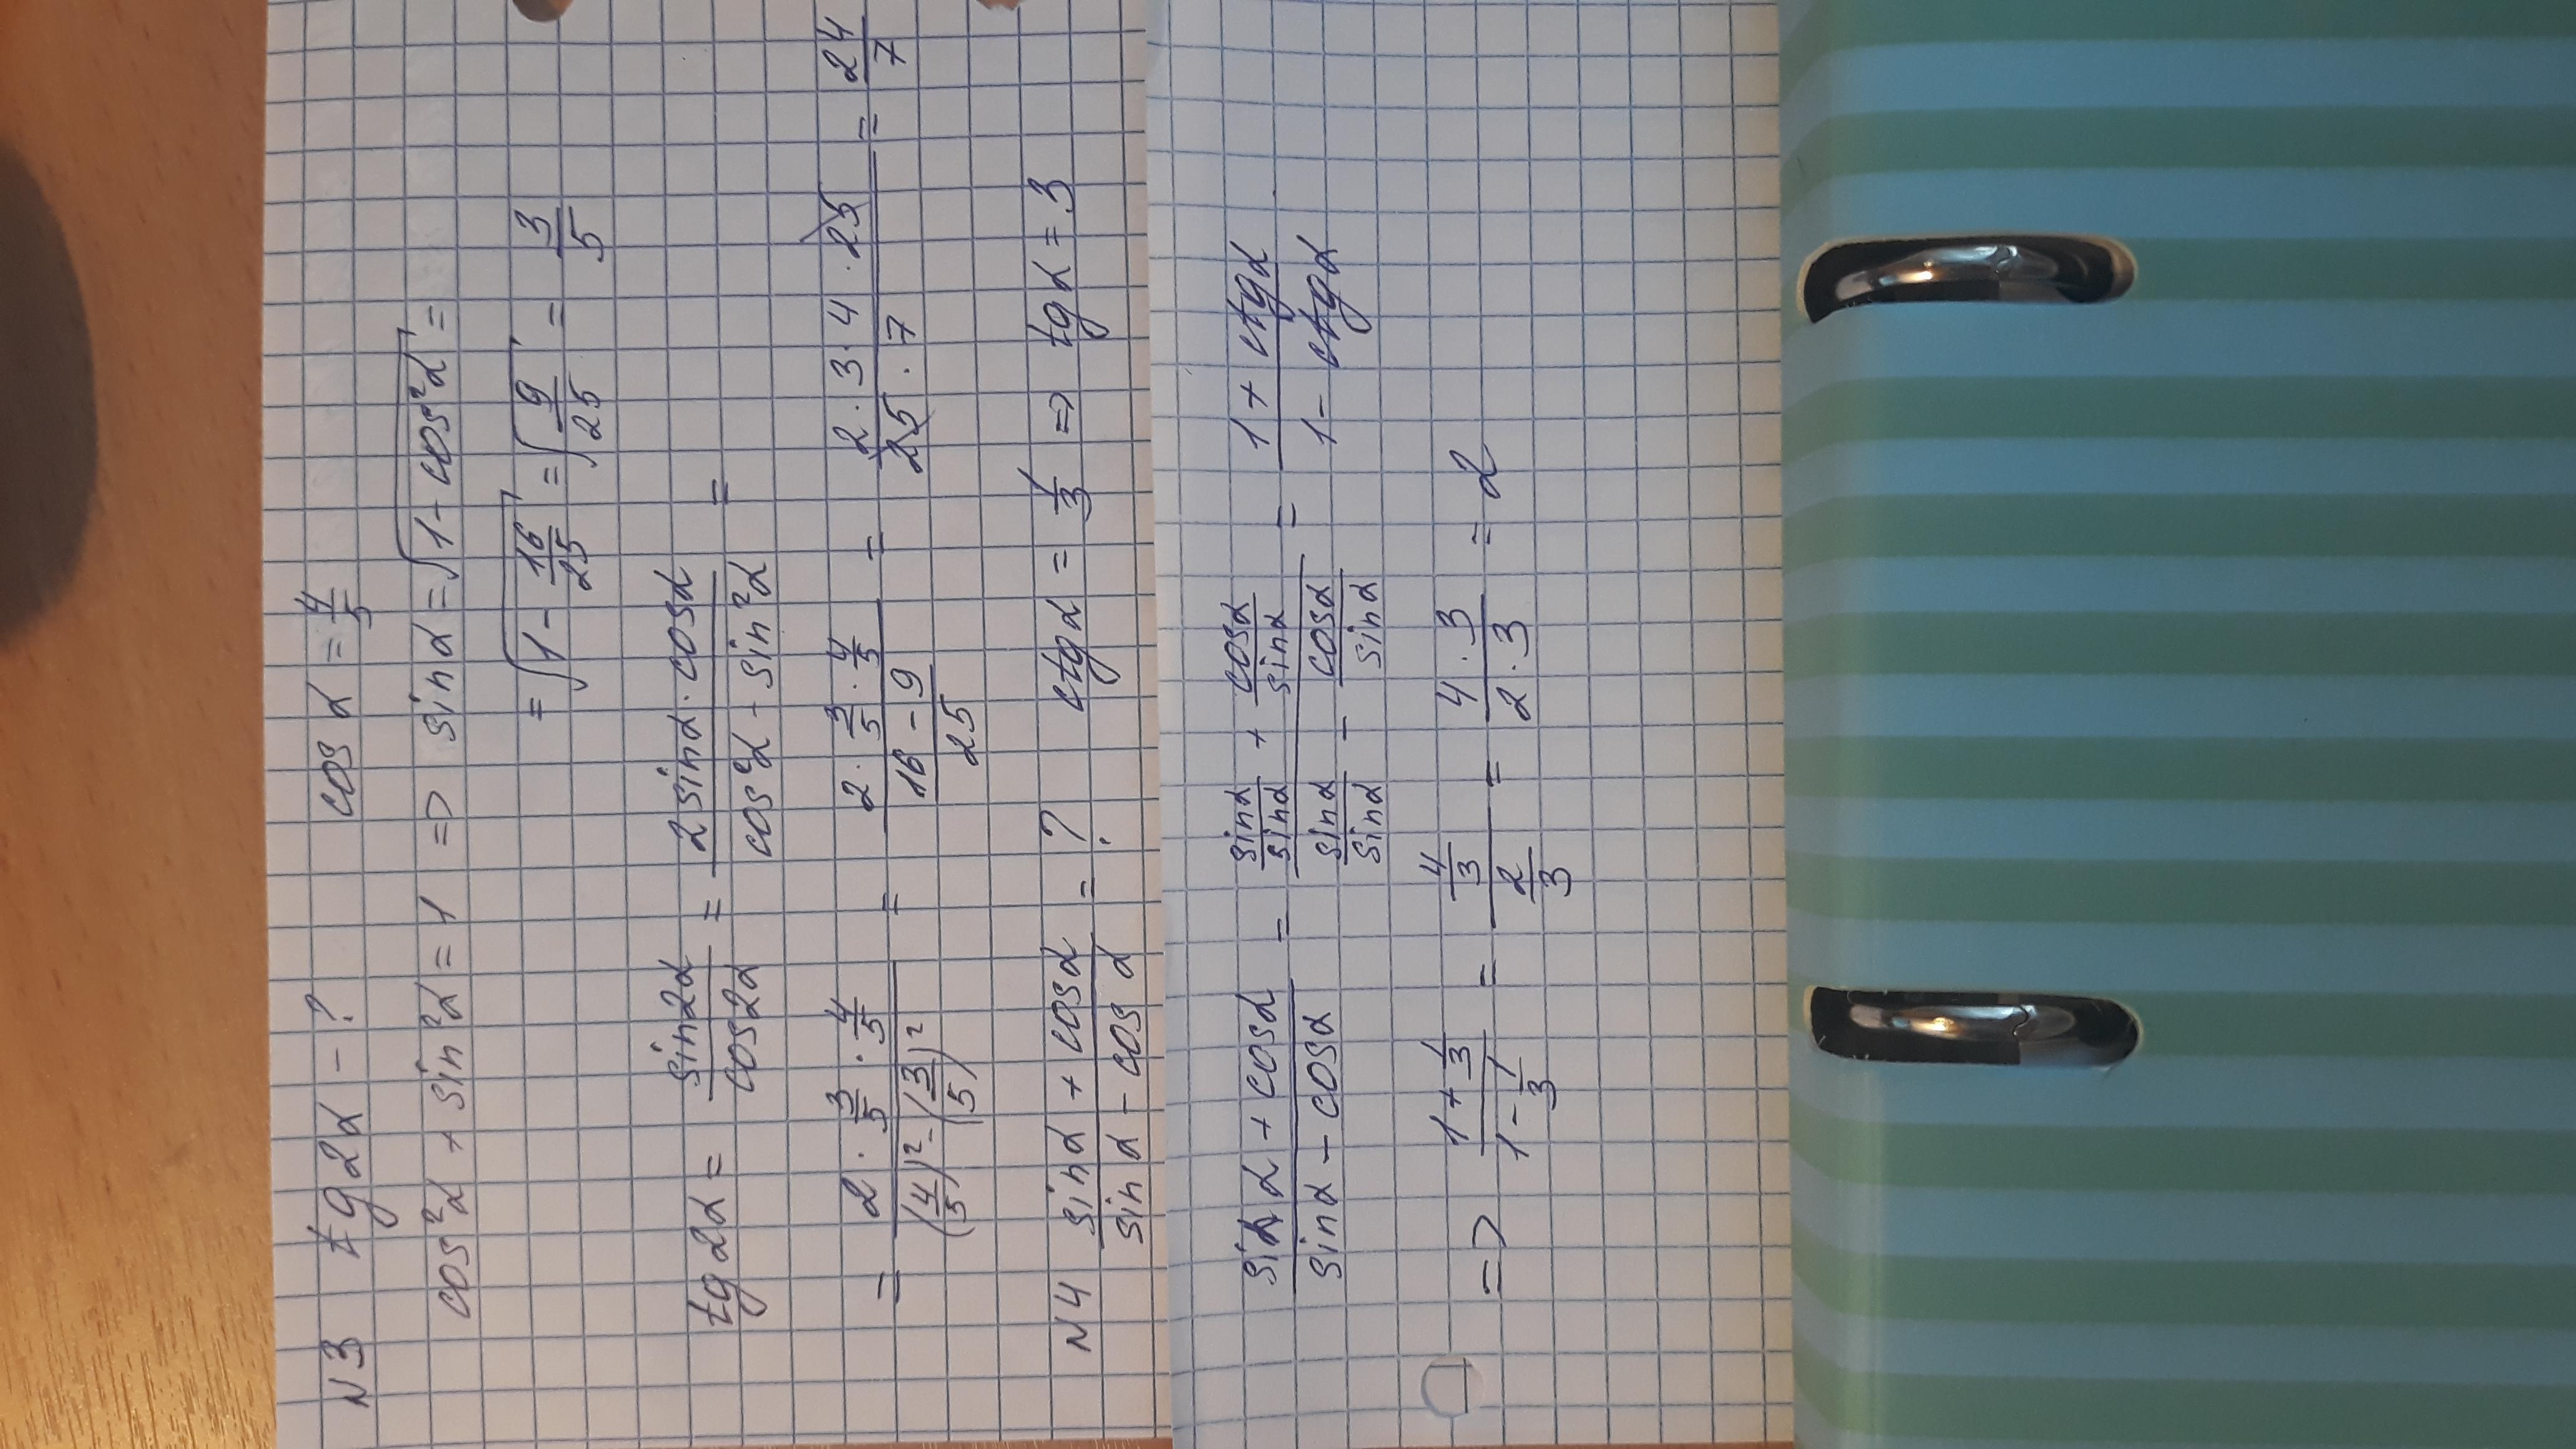 N3 tg2α - ? cos α = 4/5
cos²α + sin²α = 1 => sinα = √(1 - cos²α) =
= √(1 - 16/25) = √(9/25) = 3/5
tg2α = sin2α/cos2α = (2sinα · cosα)/(cos²α - sin²α) =
= (2 · 3/5 · 4/5)/((4/5)² - (3/5)²) = (2 · 3/5 · 4/5)/((16 - 9)/25) = (2 · 3 · 4 · 25)/(25 · 7) = 24/7
N4 (sinα + cosα)/(sinα - cos α) = ? ctgα = 1/3 => tgα = 3
(siα + cosα)/(sinα - cosα) = (sinα/sinα + cosα/sinα)/(sinα/sinα - cosα/sinα) = (1 + ctgα)/(1 - ctgα)
=> (1 + 1/3)/(1 - 1/3) = (4/3)/(2/3) = (4 · 3)/(2 · 3) = 2